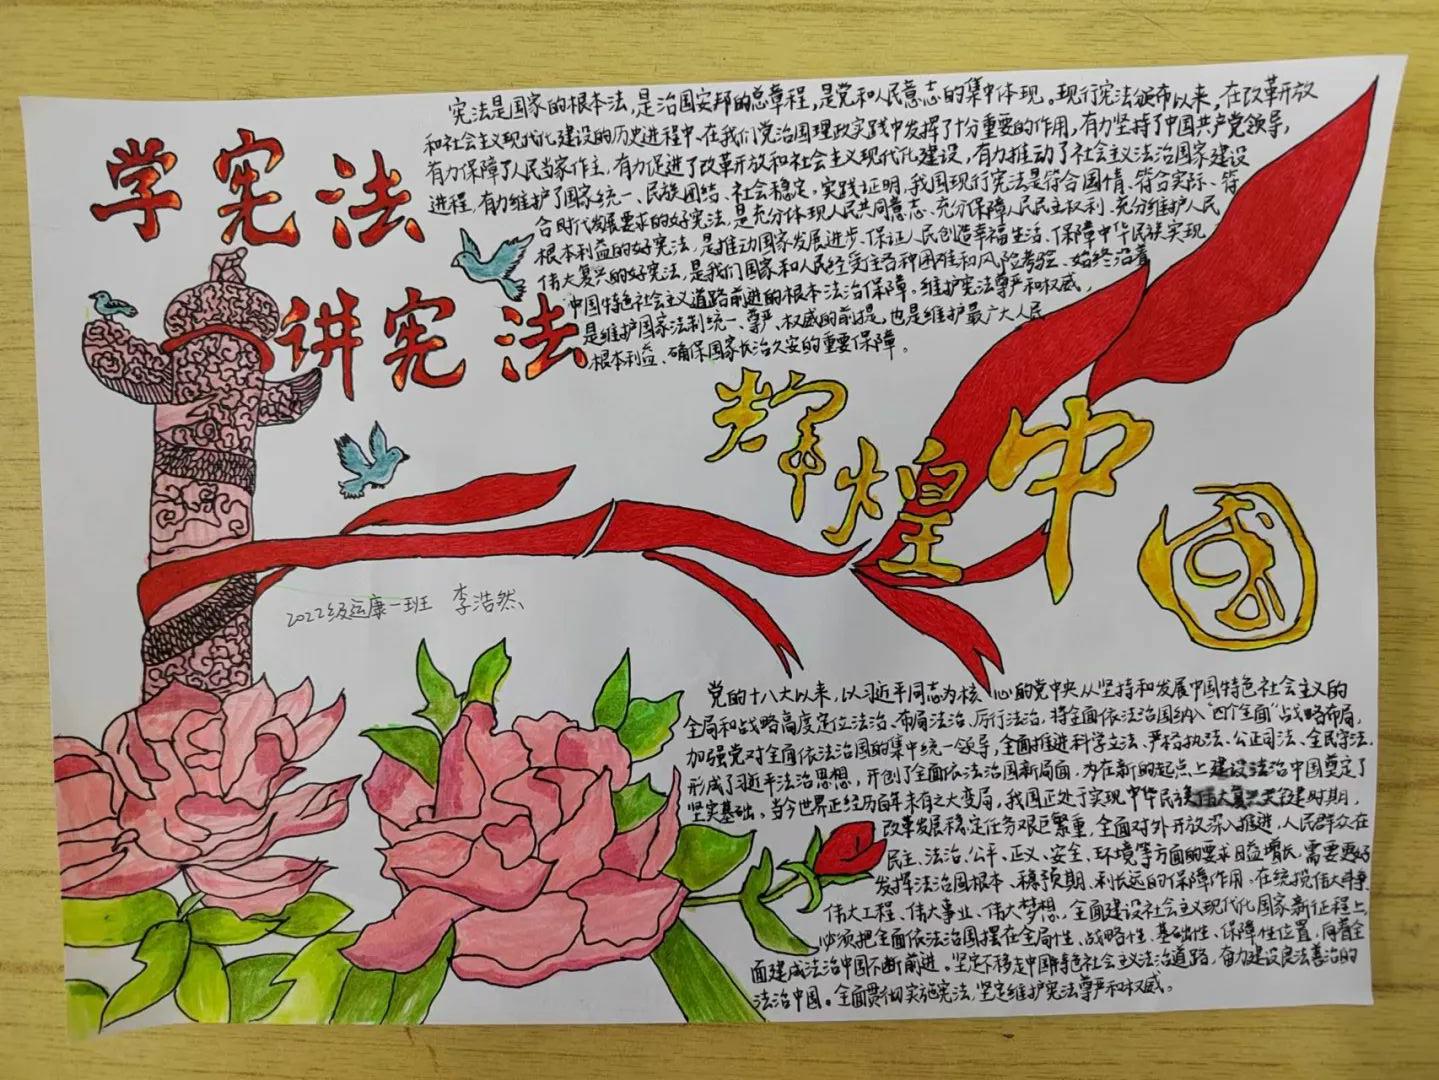 学宪法
讲宪法
宪法是国家的根本法，是治国安邦的总章程，是党和人民意志的集中体现。现行宪法颁布以来，在改革开放
和社会主义现代化建设的历史进程中、在我们党治国理政实践中发挥了十分重要的作用，有力坚持了中国共产党领导，
有力保障了人民当家作主，有力促进了改革开放和社会主义现代化建设，有力推动了社会主义法治国家建设
进程，有力维护了国家统一、民族团结、社会稳定。实践证明，我国现行宪法是符合国情、符合实际、符
合时代发展要求的好宪法，是充分体现人民共同意志、充分保障人民民主权利、充分维护人民
根本利益的好宪法，是推动国家发展进步、保证人民创造幸福生活、保障中华民族实现
伟大复兴的好宪法，是我们国家和人民经受住各种困难和风险考验、始终沿着
中国特色社会主义道路前进的根本法治保障。维护宪法尊严和权威，
是维护国家法制统一、尊严、权威的前提，也是维护最广大人民
根本利益、确保国家长治久安的重要保障。
辉煌中国
2022级运康一班 李浩然
党的十八大以来，以习近平同志为核心的党中央从坚持和发展中国特色社会主义的
全局和战略高度定位法治、布局法治、厉行法治，将全面依法治国纳入“四个全面”战略布局，
加强党对全面依法治国的集中统一领导，全面推进科学立法、严格执法、公正司法、全民守法，
形成了习近平法治思想，开创了全面依法治国新局面，为在新的起点上建设法治中国奠定了
坚实基础。当今世界正经历百年未有之大变局，我国正处于实现中华民族伟大复兴关键时期，
改革发展稳定任务艰巨繁重，全面对外开放深入推进，人民群众在
民主、法治、公平、正义、安全、环境等方面的要求日益增长，需要更好
发挥法治固根本、稳预期、利长远的保障作用。在统揽伟大斗争、
伟大工程、伟大事业、伟大梦想，全面建设社会主义现代化国家新征程上，
必须把全面依法治国摆在全局性、战略性、基础性、保障性位置，向着全
面建成法治中国不断前进。坚定不移走中国特色社会主义法治道路，奋力建设良法善治的
法治中国。全面贯彻实施宪法，坚定维护宪法尊严和权威。